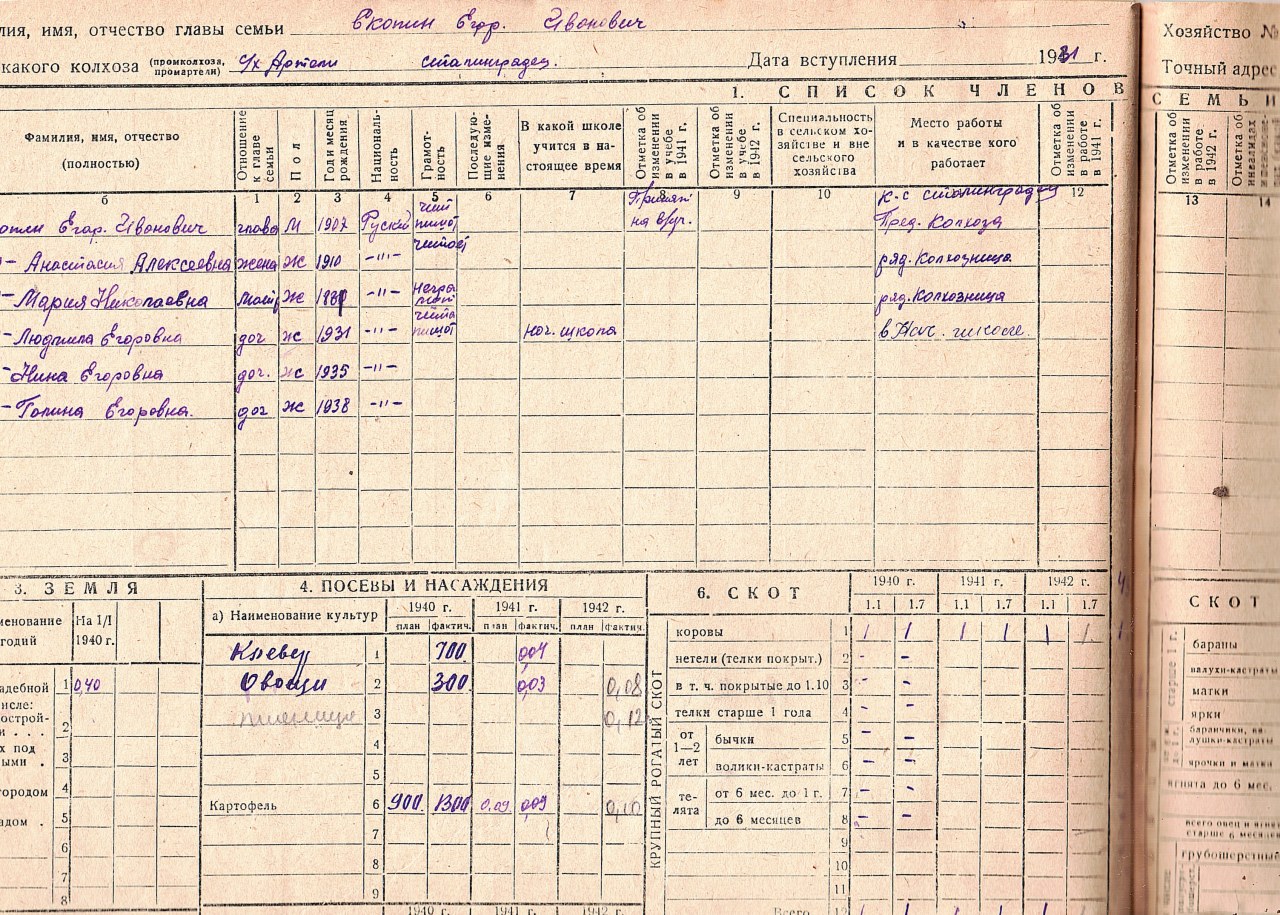 лия, имя, отчество главы семьи Скопин Егор. Иванович
какого колхоза (промколхоза, промартели) С/х Артели сталинградец. Дата вступления 1931 г.
Хозяйство №
Точный адрес
1. СПИСОК ЧЛЕНОВ
СЕМЬИ
Фамилия, имя, отчество (полностью)
Отношение к главе семьи
Пол
Год и месяц рождения
Националь-ность
Грамот-ность
Последую-щие изме-нения
В какой школе учится в на-стоящее время
Отметка об изменении в учебе в 1941 г.
Отметка об изменении в учебе в 1942 г.
Специальность в сельском хо-зяйстве и вне сельского хозяйства
Место работы и в качестве кого работает
Отметка об изменении в работе в 1941 г.
Отметка об изменении в работе в 1942 г.
Отметка об инвалидах
б 1 2 3 4 5 6 7 8 9 10 12 13 14
Егор. Иванович глава М 1907 Руский чит пишот на вруч. к-с сталинградец Пред. Колхоза
– Анастасия Алексеевна жена ж 1910 –"– читает ряд. Колхозница
– Мария Николаевна мать ж –"– негра мот ряд. Колхозница
– Людмила Егоровна доч ж 1931 –"– чита пишот нач. школа в Нач. школе.
– Нина Егоровна доч. ж 1935 –"–
– Галина Егоровна. доч ж 1938 –"–
3. ЗЕМЛЯ
менование угодий
На 1/I 1940 г.
адебной 1 0,40
числе:
острой-
и . . . 2
х под
ыми . 3
городом 4
адом . 5
6
7
8
4. ПОСЕВЫ И НАСАЖДЕНИЯ
а) Наименование культур
1940 г. 1941 г. 1942 г.
план фактич. план фактич. план фактич.
Клевер 1 700 0,04
Овощи 2 300 0,03 0,08
пшеница 3 0,12
4
5
Картофель 6 900 1300 0,09 0,09 0,10
7
8
9
1940 г. 1941 г. 1942 г.
6. СКОТ
1940 г. 1941 г. 1942 г.
1.1 1.7 1.1 1.7 1.1 1.7
КРУПНЫЙ РОГАТЫЙ СКОТ
коровы 1 1 1 1 1 1 1
нетели (телки покрыт.) 2 – –
в т. ч. покрытые до 1.10 3 – –
телки старше 1 года 4 – –
от 1—2 лет
бычки 5 – –
волики-кастраты 6 – –
те-лята
от 6 мес. до 1 г. 7 – –
до 6 месяцев 8 – –
9
10
11
Всего 12
СКОТ
старше 1 г.
бараны
валухи-кастраты
матки
ярки
ярочки и матки
ягнята до 6 мес.
всего овец и ягнят
старше 6 месяцев
грубошерстных